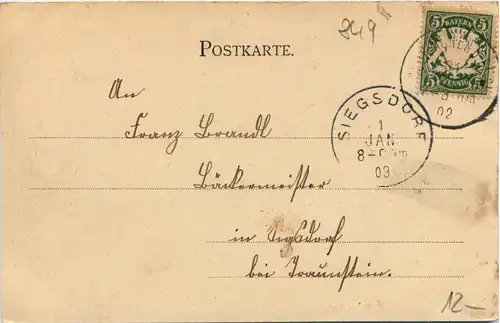 849
POSTKARTE.
5 BAYERN 5
5 PFENNIG 5
02
SIEGSDORF
1
JAN
03
An
Franz Brandl
Bäckermeister
in Sigsdorf
bei Traunstein.
12-